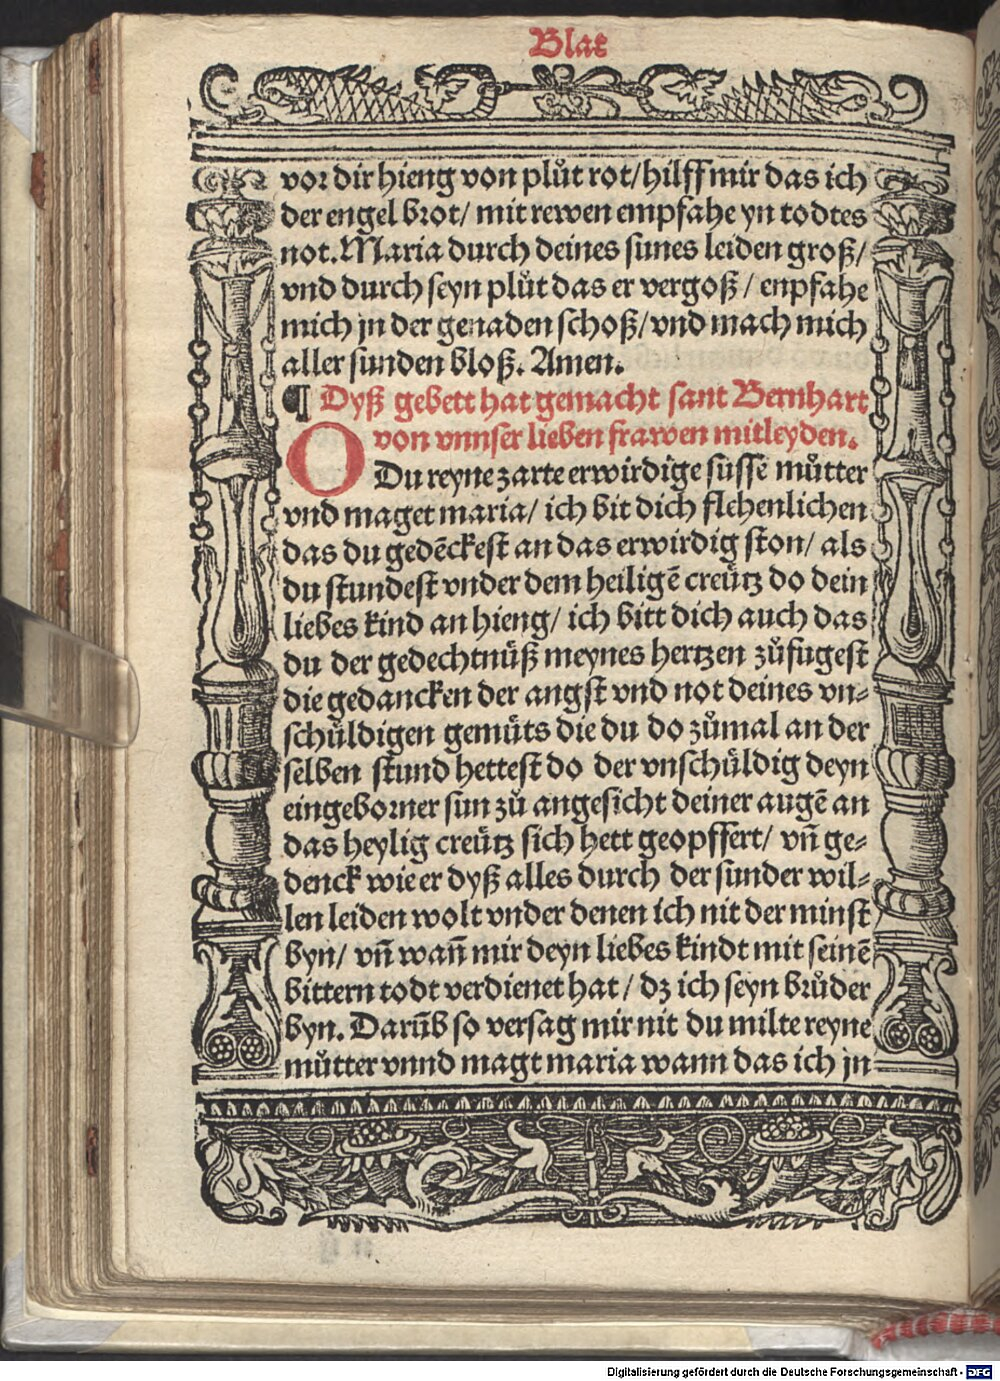 Blat
vor dir hieng von plůt rot/ hilff mir das ich
der engel brot/ mit rewen empfahe yn todtes
not. Maria durch deines sunes leiden groß/
vnd durch seyn plůt das er vergoß / enpfahe
mich jn der genaden schoß/ vnd mach mich
aller sunden bloß. Amen.
¶ Dyß gebett hat gemacht sant Bernhart
von vnnser lieben frawen mitleyden.
O Du reyne zarte erwirdige süssē můtter
vnd maget maria/ ich bit dich flehenlichen
das du gedēckest an das erwirdig ston/ als
du stundest vnder dem heiligē creütz do dein
liebes kind an hieng/ ich bitt dich auch das
du der gedechtnüß meynes hertzen zůfugest
die gedancken der angst vnd not deines vn⸗
schüldigen gemüts die du do zůmal an der
selben stund hettest do der vnschüldig deyn
eingeborner sun zů angesicht deiner augē an
das heylig creütz sich hett geopffert/ vn̄ ge⸗
denck wie er dyß alles durch der sunder wil⸗
len leiden wolt vnder denen ich nit der minst
byn/ vn̄ wan̄ mir deyn liebes kindt mit seinē
bittern todt verdienet hat / dz ich seyn brůder
byn. Darūb so versag mir nit du milte reyne
můtter vnnd magt maria wann das ich jn
Digitalisierung gefördert durch die Deutsche Forschungsgemeinschaft - DFG